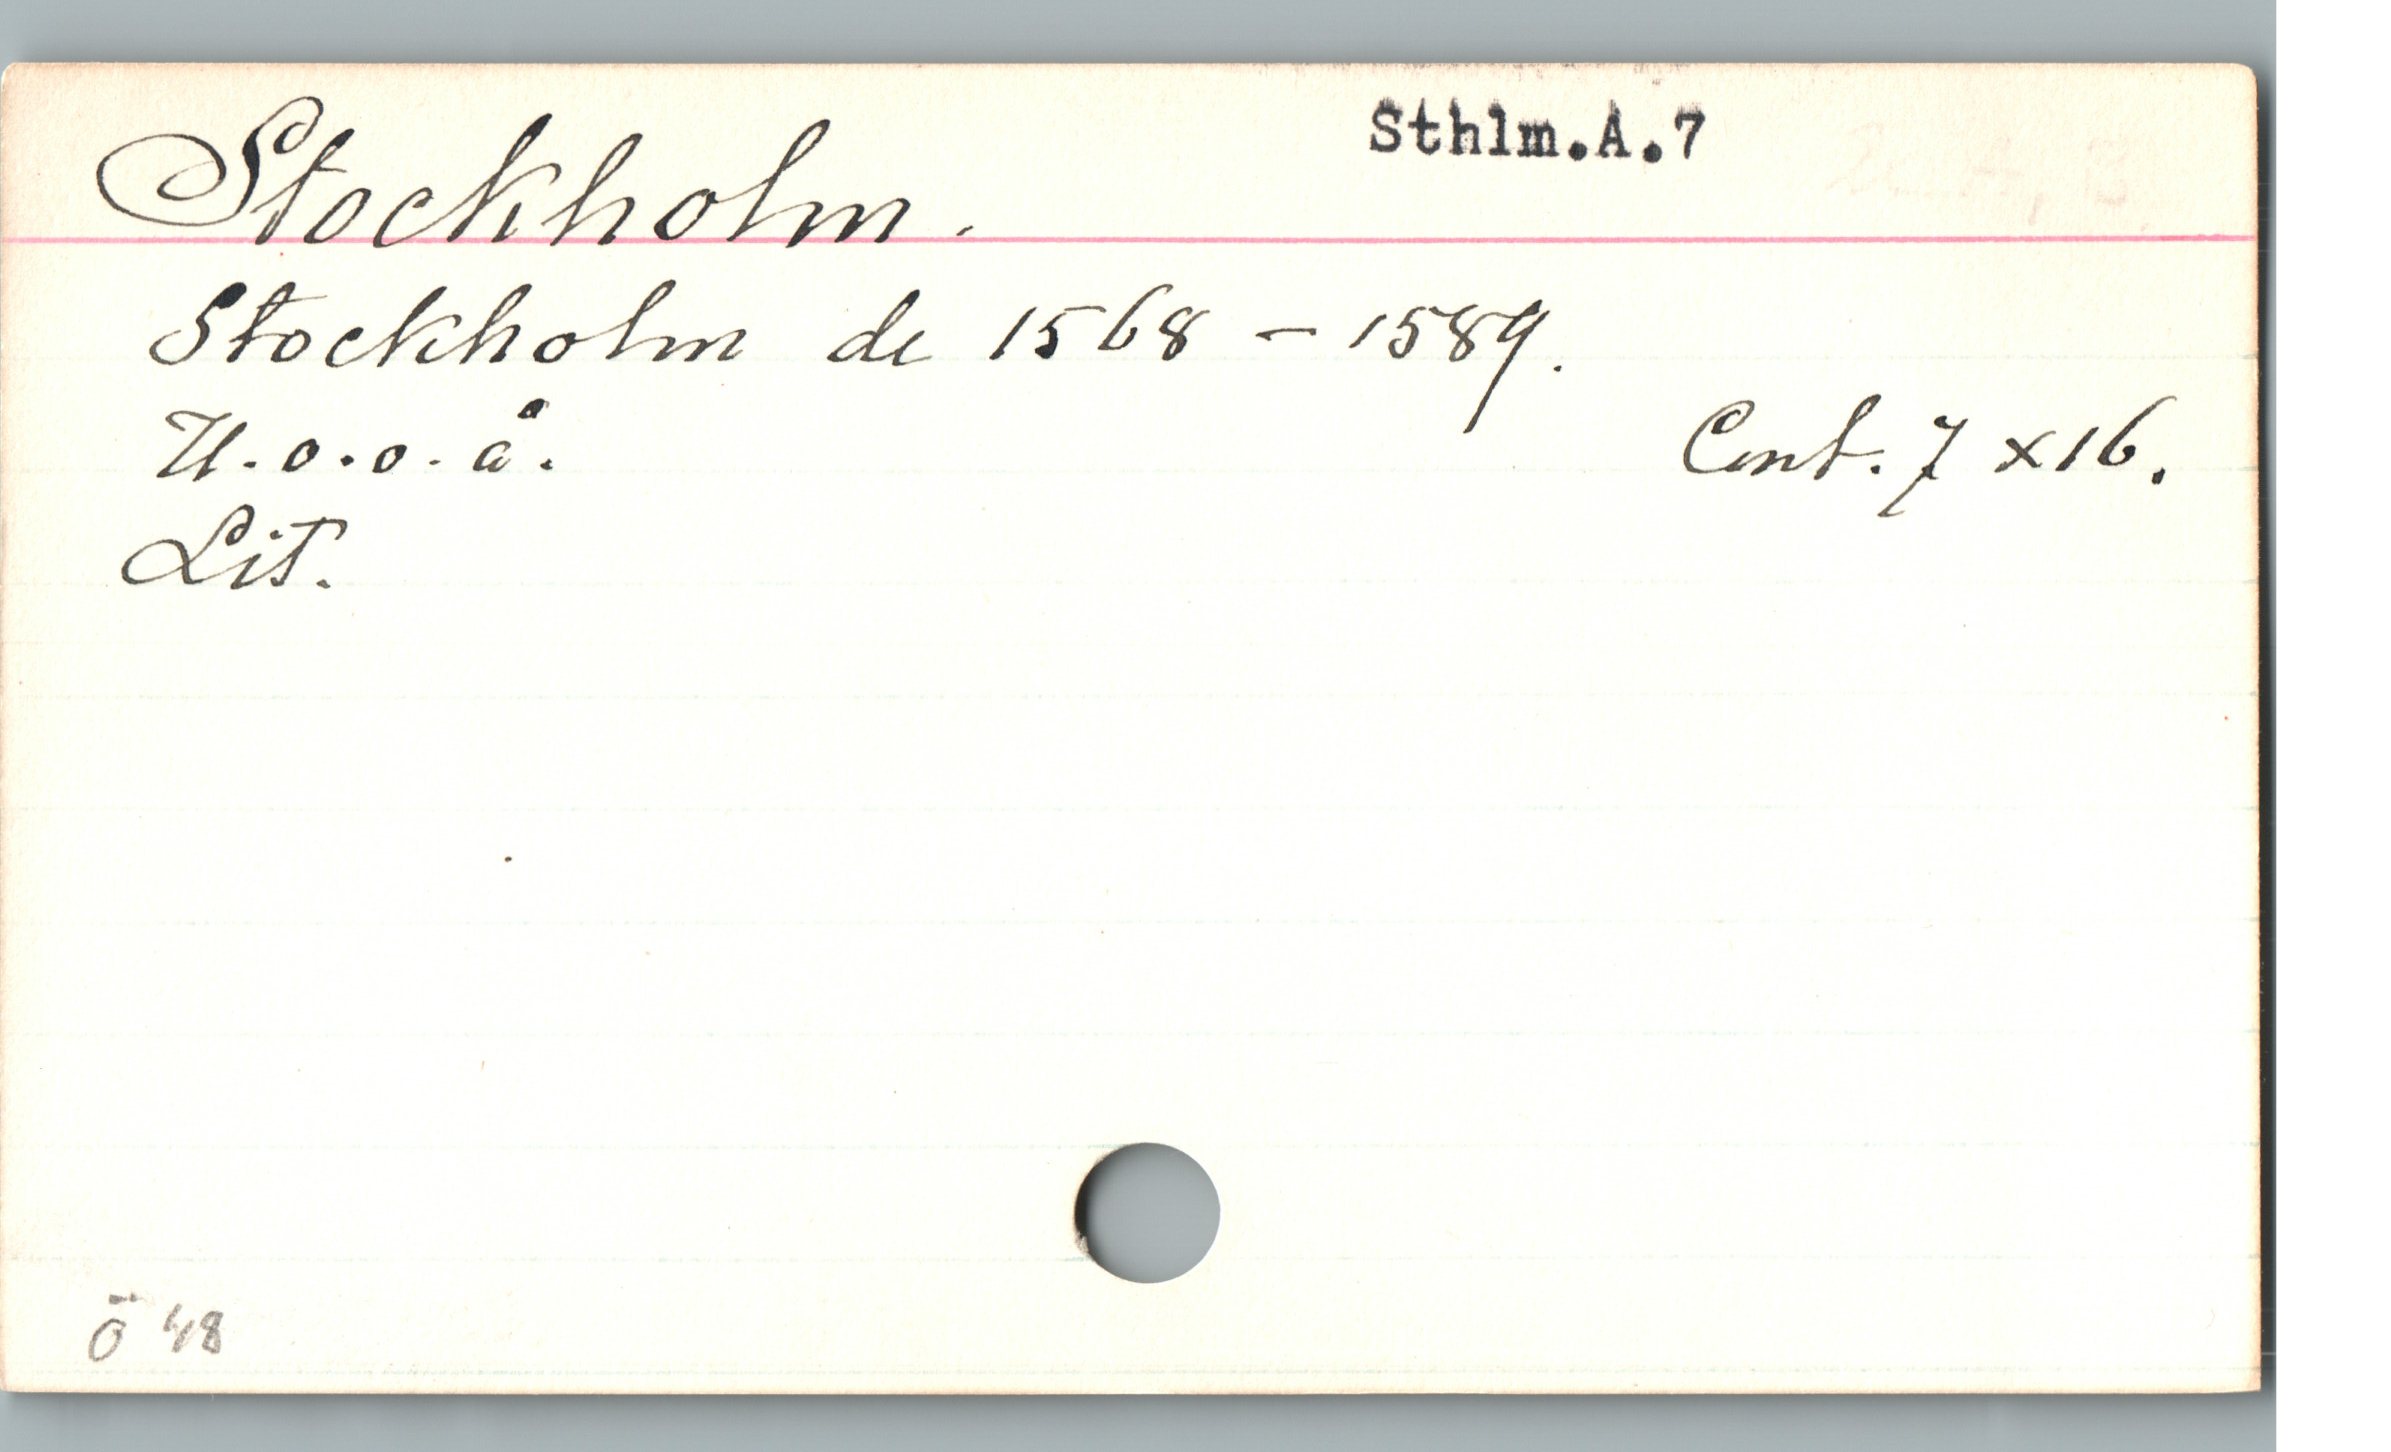 Stockholm. Sthlm.A.7
Stockholm de 1568 - 1589.
U.o.o.å. Cent. 7 x 16.
Lit.
Ö 48